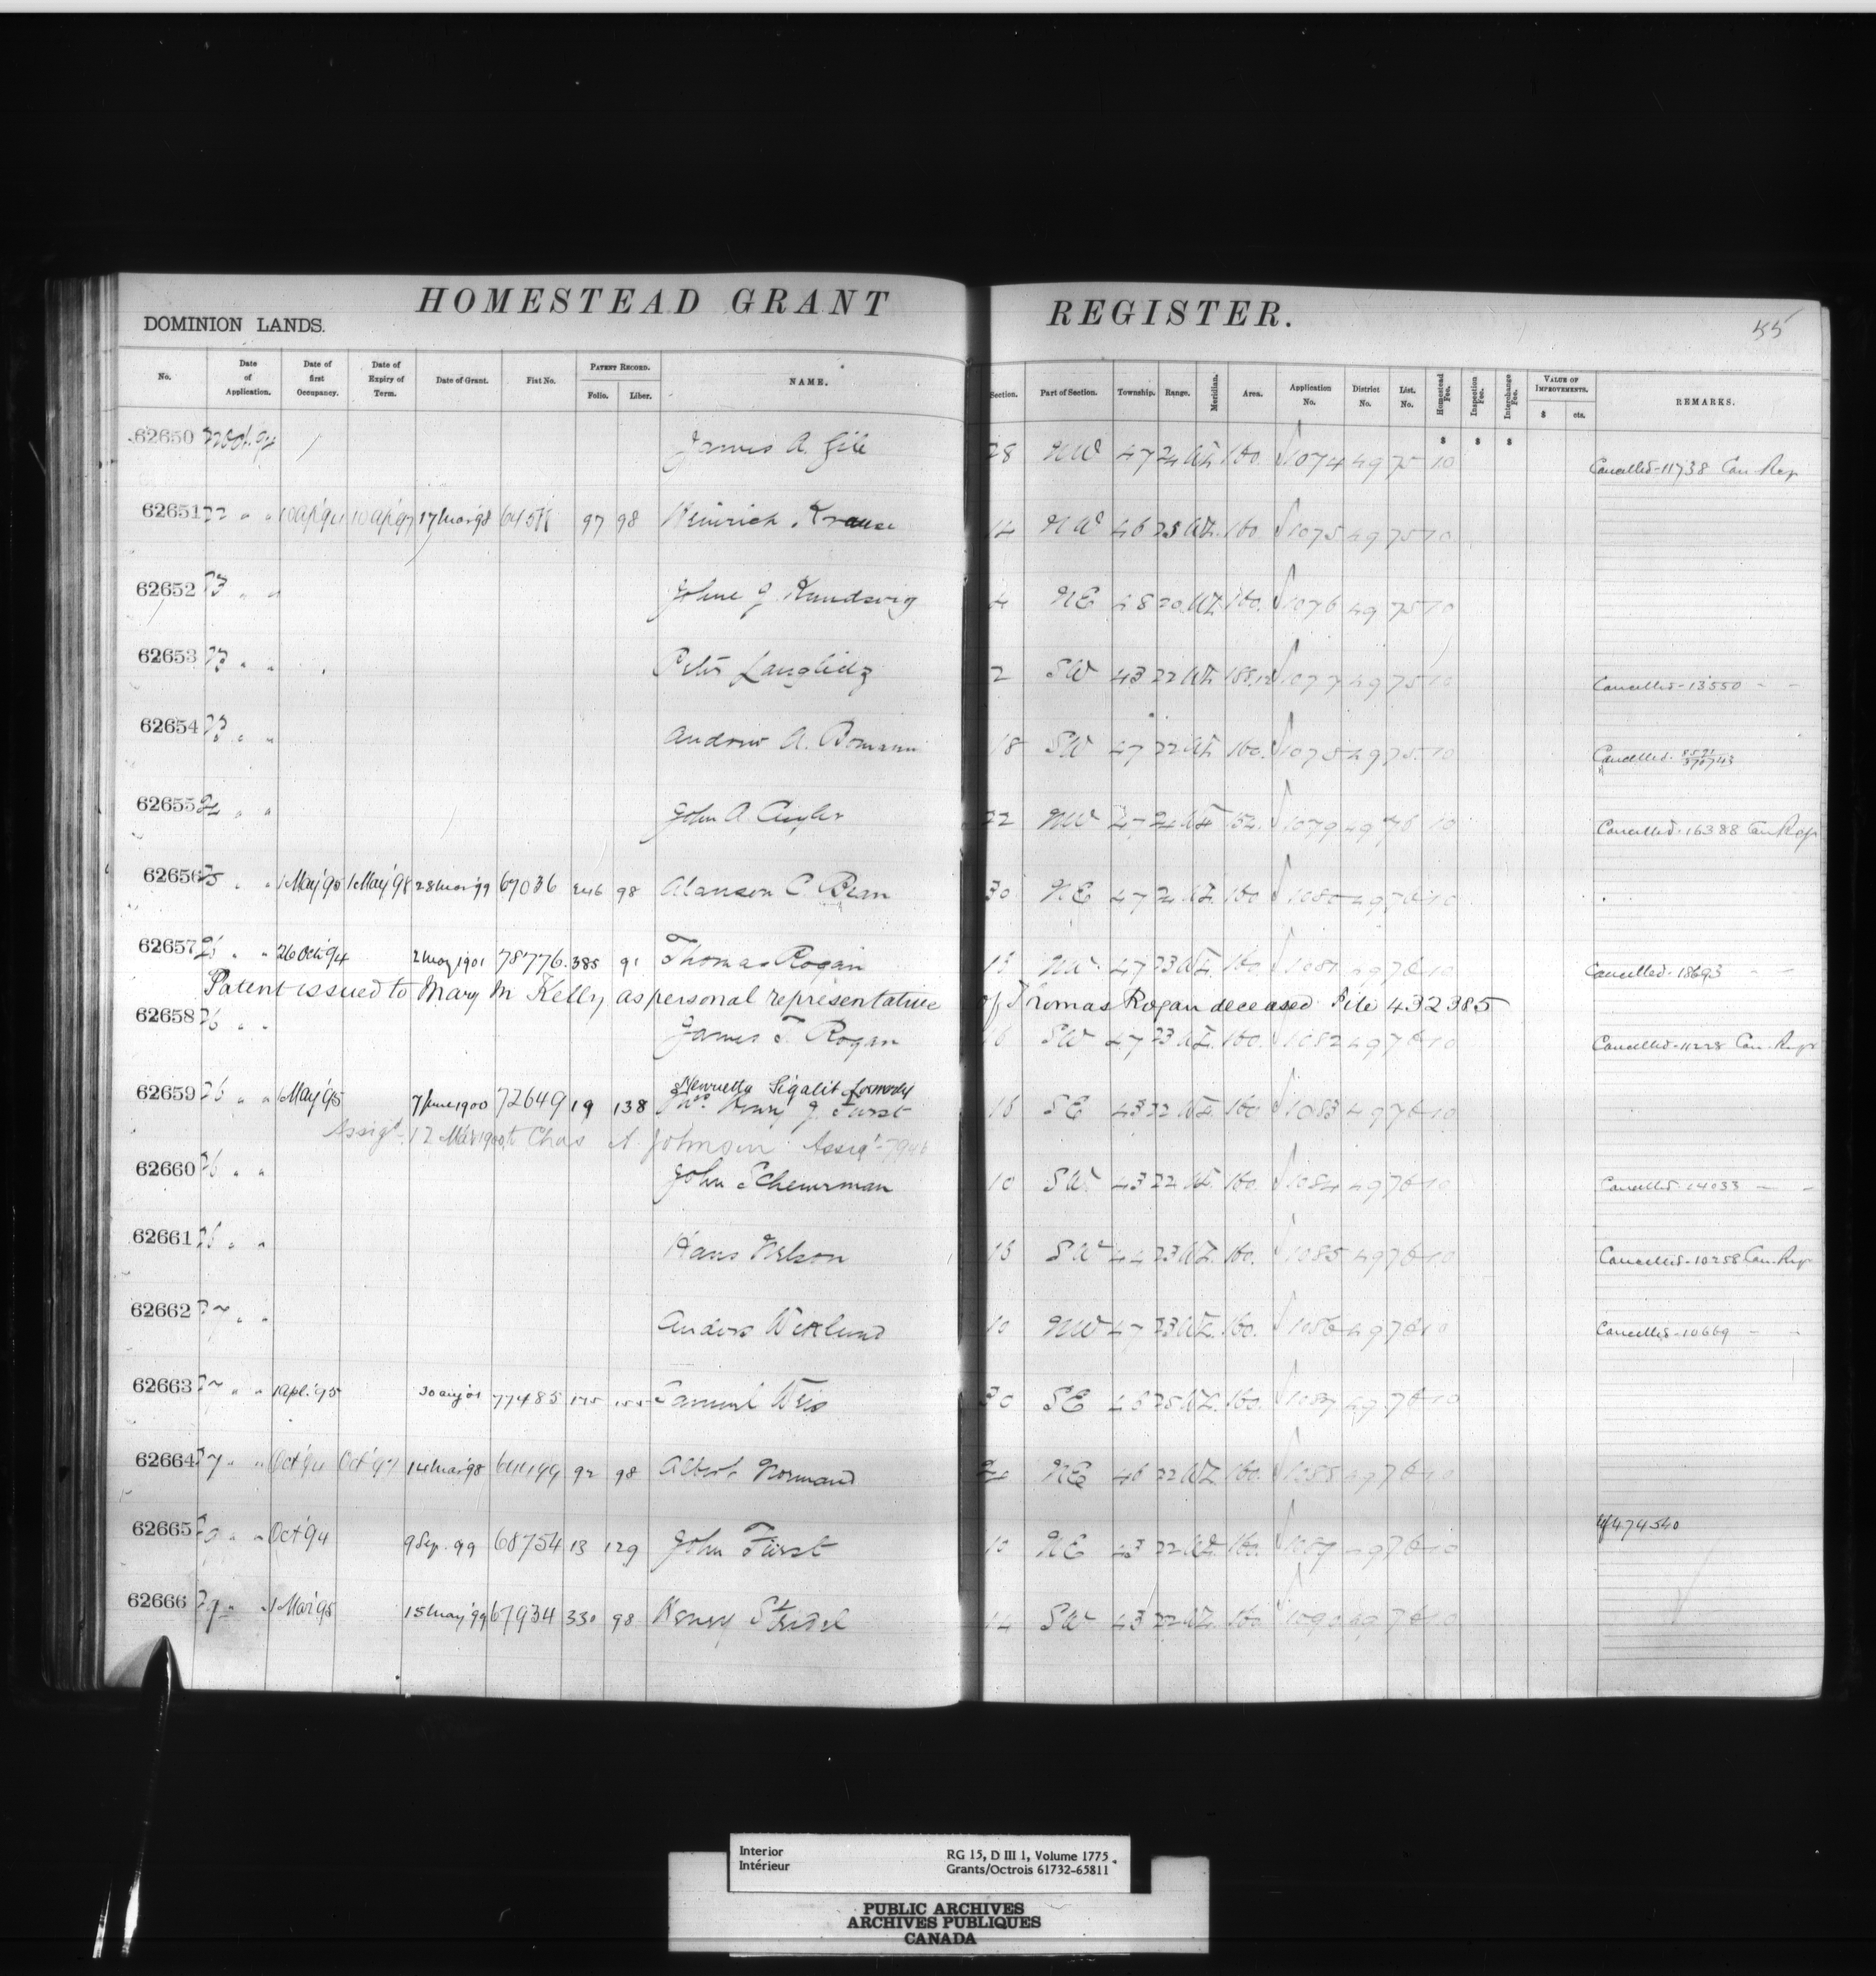 HOMESTEAD GRANT REGISTER.
DOMINION LANDS.
55
No. Date of Application. Date of first Occupancy. Date of Expiry of Term. Date of Grant. Fiat No. PATENT RECORD. Folio. Liber. NAME. Section. Part of Section. Township. Range. Meridian. Area. Application No. District No. List. No. Homestead Fee. Inspection Fee. Interchange Fee. VALUE OF IMPROVEMENTS. $ cts. REMARKS.
$ $ $
62650 James A. 28 NW 47 24 160. 1074 49 75 10 Cancelled-11738 Can. Rep
62651 22 " " 10 Ap'94 10 Ap'97 17 Mar'98 97 98 Heinrich Krause 14 NW 46 25 160. 1075 49 75 10
62652 23 " " 4 NE 48 20 160. 1076 49 75 10
62653 23 " " Peter 2 SW 43 22 1077 49 75 10 Cancelled-13550 " "
62654 23 " " Andrew A. 18 SW 47 22 160. 1078 49 75 10 Cancelled.
62655 24 " " John A. 22 NW 47 24 1079 49 76 10 Cancelled-16388 Can Rep
62656 25 " " 1 May'95 1 May'98 28 Mar'99 67036 246 98 Alanson C. Bean 30 NE 47 24 160 1080 49 76 10
62657 26 " " 26 Oct'94 2 May 1901 78776. 385 91 Thomas Rogan 16 NW 47 23 160. 1081 49 76 10 Cancelled-18693 " "
Patent issued to Mary M Kelly as personal representative of Thomas Rogan deceased File 432385
62658 26 " " James T. Rogan 16 SW 47 23 160. 1082 49 76 10 Cancelled-11228 Can. Rep
Henrietta Sigalit formerly
62659 26 " " May'95 7 June 1900 72649 19 138 Mrs. Henry J. Furst 16 SE 43 22 160 1083 49 76 10
Assig't 12 Mar 1900 to Chas A Johnson Assig't
62660 26 " " John Scheurman 10 SW 43 22 160. 1084 49 76 10 Cancelled-14033 " "
62661 26 " " Hans Nelson 16 SW 44 23 160. 1085 49 76 10 Cancelled-10258 Can. Rep
62662 27 " " Anders Wiklund 10 NW 47 23 160. 1086 49 76 10 Cancelled-10669 " "
62663 27 " " 1 Apl.'95 77485 175 Samuel Weis 30 SE 46 25 160. 1087 49 76 10
62664 27 " " Oct'94 Oct'97 14 Mar'98 92 98 Albert Normand 24 NE 46 22 160. 1088 49 76 10
62665 " " Oct'94 9 Sep. 99 68754 13 129 John Furst 10 NE 43 22 160. 1089 49 76 10 474540
62666 29 " " 1 Mar'95 15 May'99 67934 330 98 Henry Streidel 14 SW 43 22 160 1090 49 76 10
Interior RG 15, D III 1, Volume 1775
Intérieur Grants/Octrois 61732-65811
PUBLIC ARCHIVES
ARCHIVES PUBLIQUES
CANADA